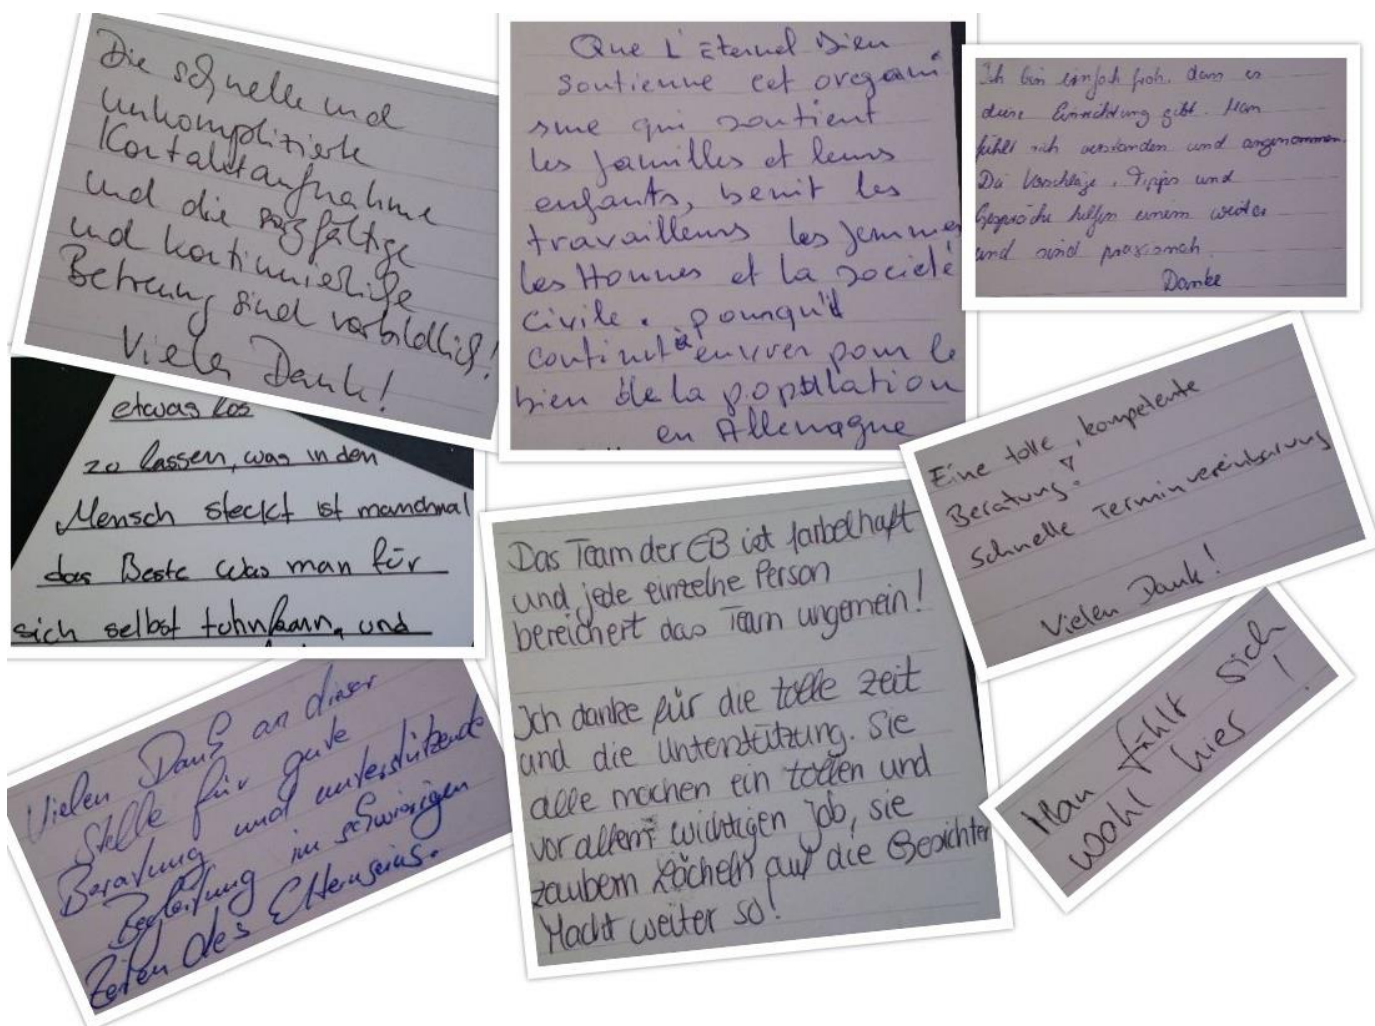 Die schnelle und
unkomplizierte
Kontaktaufnahme
und die sorgfältige
und kontinuierliche
Betreuung sind vorbildlich!
Vielen Dank!
Que L'Eternel Dieu
soutienne cet oregani
sme qui soutient
les familles et leurs
enfants, benit les
travailleurs les femmes
les Hommes et la societé
civile. pourqu'il
continut à euvrer pour le
bien de la population
en Allemagne
Ich bin einfach froh, dass es
diese Einrichtung gibt. Man
fühlt sich verstanden und angenommen.
Die Vorschläge, Tipps und
Gespräche helfen einem weiter
und sind praxisnah.
Danke
etwas los
zu lassen, was in den
Mensch steckt ist manchmal
das Beste was man für
sich selbst tuhn kann, und
Eine tolle, kompetente
Beratung!
Schnelle Terminvereinbarung
Vielen Dank!
Das Team der EB ist farbelhaft
und jede einzelne Person
bereichert das Team ungemein!
Ich danke für die tolle Zeit
und die Unterstützung. Sie
alle machen ein tollen und
vor allem wichtigen Job, sie
zaubern Lächeln auf die Gesichter
Macht weiter so!
Man fühlt sich
wohl hier!
Vielen Dank an dieser
Stelle für gute
Beratung und unterstützende
Begleitung in schwierigen
Zeiten des Elternseins.